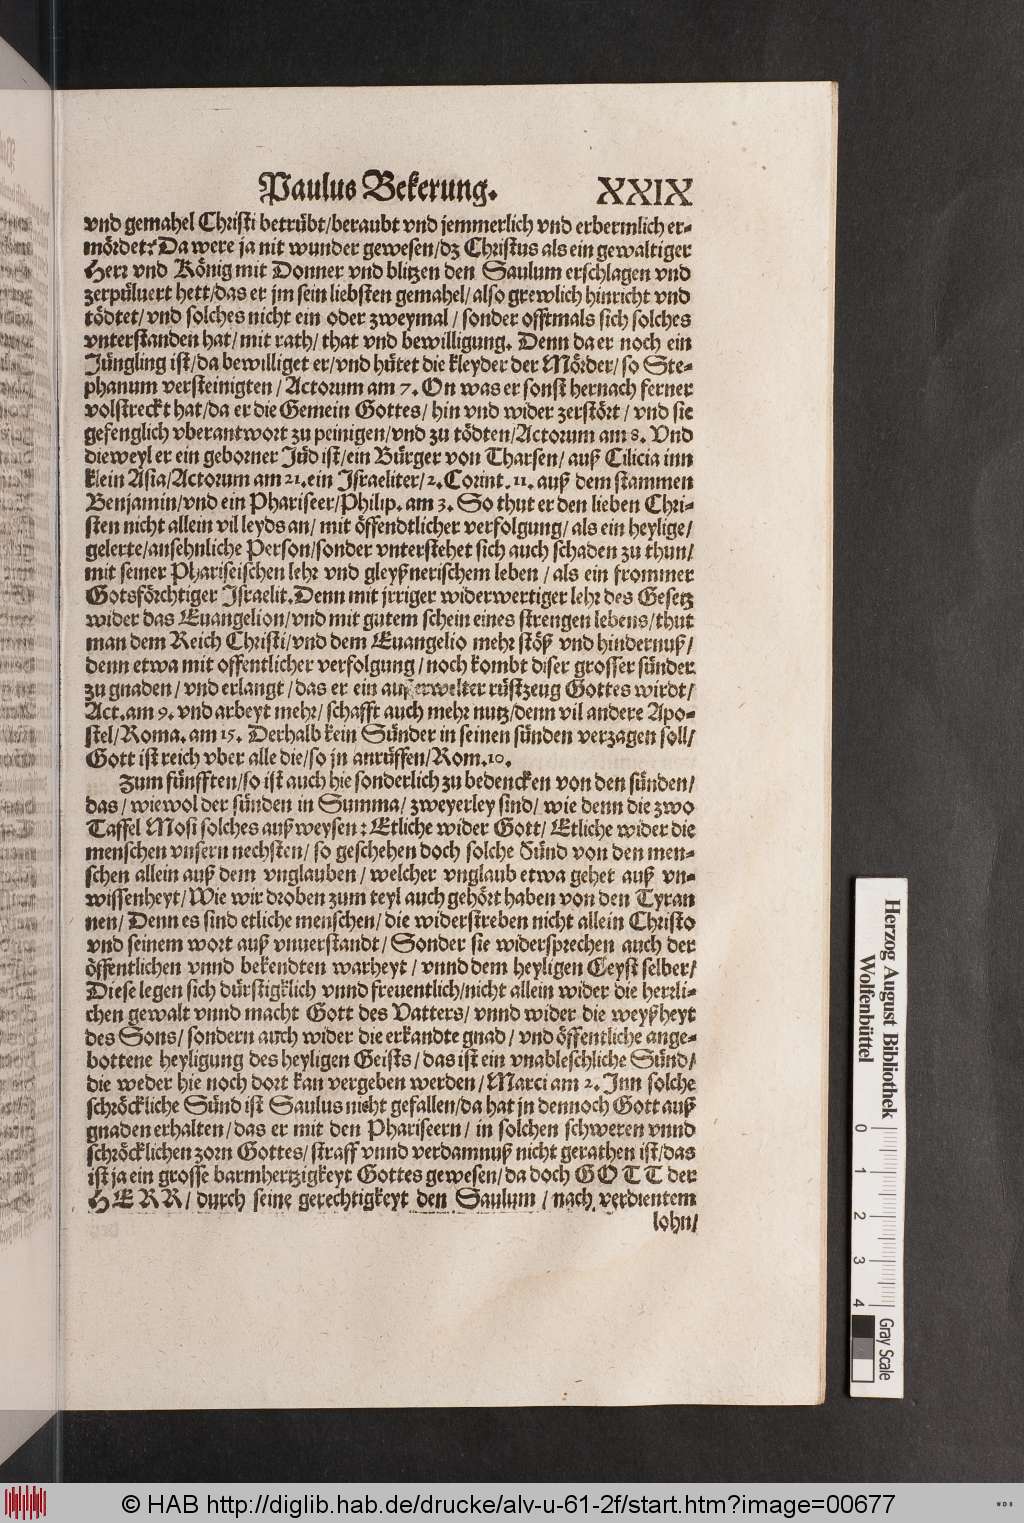 Paulus Bekerung. XXIX
vnd gemahel Christi betrübt/beraubt vnd jemmerlich vnd erbermlich er-
mördet? Da were ja nit wunder gewesen/dz Christus als ein gewaltiger
Herr vnd König mit Donner vnd blitzen den Saulum erschlagen vnd
zerpüluert hett/das er jm sein liebsten gemahel/also grewlich hinricht vnd
tödtet/vnd solches nicht ein oder zweymal/sonder offtmals sich solches
vnterstanden hat/mit rath/that vnd bewilligung. Denn da er noch ein
Jüngling ist/da bewilliget er/vnd hütet die kleyder der Mörder/so Ste-
phanum versteinigten/Actorum am 7. On was er sonst hernach ferner
volstreckt hat/da er die Gemein Gottes/hin vnd wider zerstört/vnd sie
gefenglich vberantwort zu peinigen/vnd zu tödten/Actorum am 8. Vnd
dieweyl er ein geborner Jüd ist/ein Bürger von Tharsen/auß Cilicia inn
klein Asia/Actorum am 21. ein Israeliter/2. Corint. 11. auß dem stammen
Benjamin/vnd ein Phariseer/Philip. am 3. So thut er den lieben Chri-
sten nicht allein vil leyds an/mit öffendtlicher verfolgung/als ein heylige/
gelerte/ansehnliche Person/sonder vnterstehet sich auch schaden zu thun/
mit seiner Phariseischen lehr vnd gleyßnerischem leben/als ein frommer
Gotsförchtiger Israelit. Denn mit jrriger widerwertiger lehr des Gesetz
wider das Euangelion/vnd mit gutem schein eines strengen lebens/thut
man dem Reich Christi/vnd dem Euangelio mehr stöß vnd hindernuß/
denn etwa mit offentlicher verfolgung/noch kombt diser grosser sünder
zu gnaden/vnd erlangt/das er ein außerwelter rüstzeug Gottes wirdt/
Act. am 9. vnd arbeyt mehr/schafft auch mehr nutz/denn vil andere Apo-
stel/Roma. am 15. Derhalb kein Sünder in seinen sünden verzagen soll/
Gott ist reich vber alle die/so jn anrüffen/Rom. 10.
Zum fünfften/so ist auch hie sonderlich zu bedencken von den sünden/
das/wiewol der sünden in Summa/zweyerley sind/wie denn die zwo
Taffel Mosi solches auß weysen: Etliche wider Gott/Etliche wider die
menschen vnsern nechsten/so geschehen doch solche Sünd von den men-
schen allein auß dem vnglauben/welcher vnglaub etwa gehet auß vn-
wissenheyt/Wie wir droben zum teyl auch gehört haben von den Tyran
nen/Denn es sind etliche menschen/die widerstreben nicht allein Christo
vnd seinem wort auß vnuerstandt/Sonder sie widersprechen auch der
öffentlichen vnnd bekendten warheyt/vnnd dem heyligen Geyst selber/
Diese legen sich dürstigklich vnnd freuentlich/nicht allein wider die herrli-
chen gewalt vnnd macht Gott des Vatters/vnnd wider die weyßheyt
des Sons/sondern auch wider die erkandte gnad/vnd öffentliche ange-
bottene heyligung des heyligen Geists/das ist ein vnableschliche Sünd/
die weder hie noch dort kan vergeben werden/Marci am 2. Inn solche
schröckliche Sünd ist Saulus nicht gefallen/da hat jn dennoch Gott auß
gnaden erhalten/das er mit den Phariseern/in solchen schweren vnnd
schröcklichen zorn Gottes/straff vnnd verdamnuß nicht gerathen ist/das
ist ja ein grosse barmhertzigkeyt Gottes gewesen/da doch GOTT der
HERR/durch seine gerechtigkeyt den Saulum/nach verdientem
lohn/
Herzog August Bibliothek
Wolfenbüttel
0 1 2 3 4
Gray Scale
© HAB http://diglib.hab.de/drucke/alv-u-61-2f/start.htm?image=00677